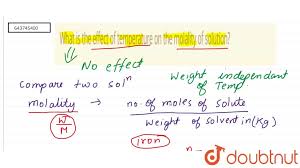 643745400
What is the effect of temperature on the molality of solution?
No effect
Compare two solⁿ
Weight independant
of Temp
molality → no. of moles of solute
weight of solvent in (kg)
W
M
Iron
n -
doubtnut